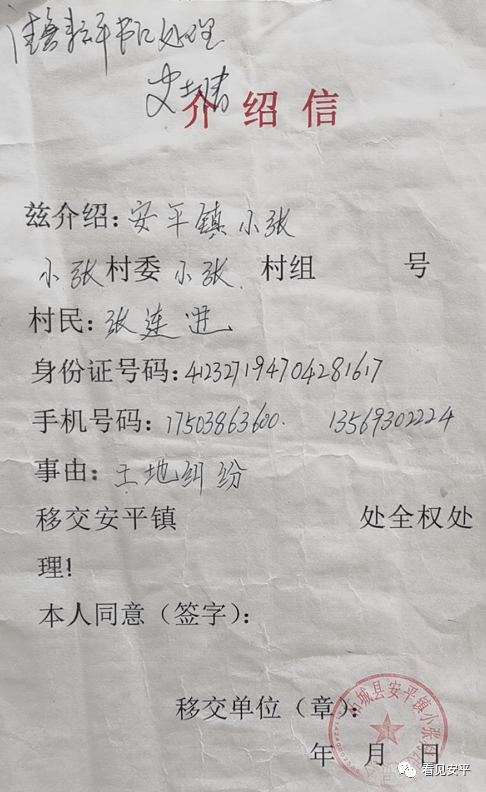 处理
介绍信
兹介绍：安平镇小张
小张村委小张村组 号
村民：张连进
身份证号码：412327194704281617
手机号码：17503863600. 13569302224
事由：土地纠纷
移交安平镇 处全权处
理！
本人同意（签字）：
移交单位（章）：
年 月 日
城县安平镇小张
看见安平